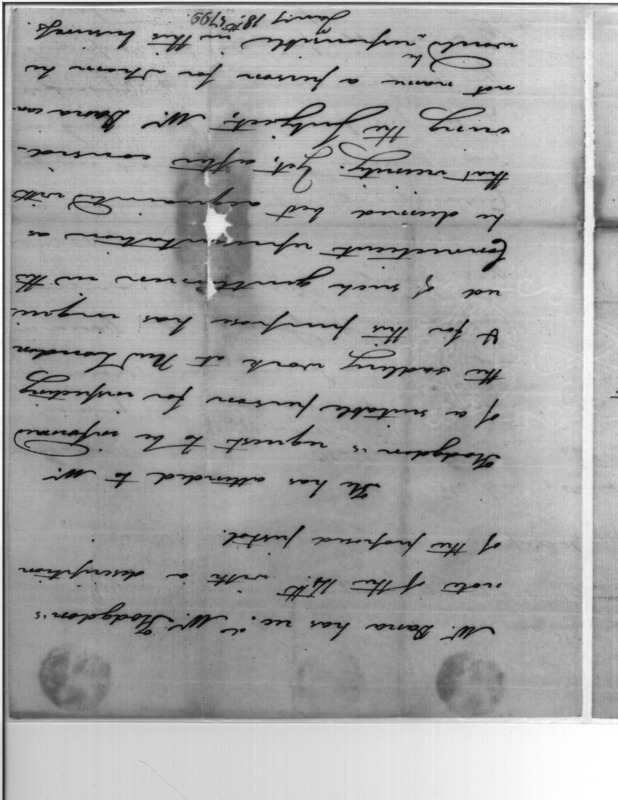 Mr. Dana has recd. Mr. Hodgdon's
note of the 14th. with a description
of the proposed pistol.
He has attended to Mr.
Hodgdon's request to be informed
of a suitable person for inspecting
the sadlery work at New London
& for this purpose has enquir
ed of such gentlemen in the
Connecticut representation as
he deemed best acquainted with
that vicinity. Yet, after consid-
ering the subject, Mr. Dana can
not name a person for whom he
would be responsible in this business.
Jany 18th. 1799